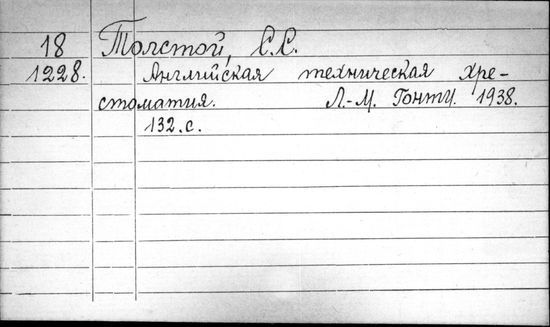 18 Толстой, С.С.
1228. Английская техническая хре-
стоматия. Л.-М. Гонти. 1938.
132.с.